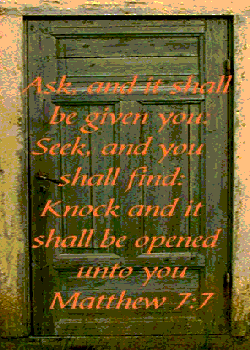 Ask, and it shall
be given you:
Seek, and you
shall find:
Knock and it
shall be opened
unto you
Matthew 7:7